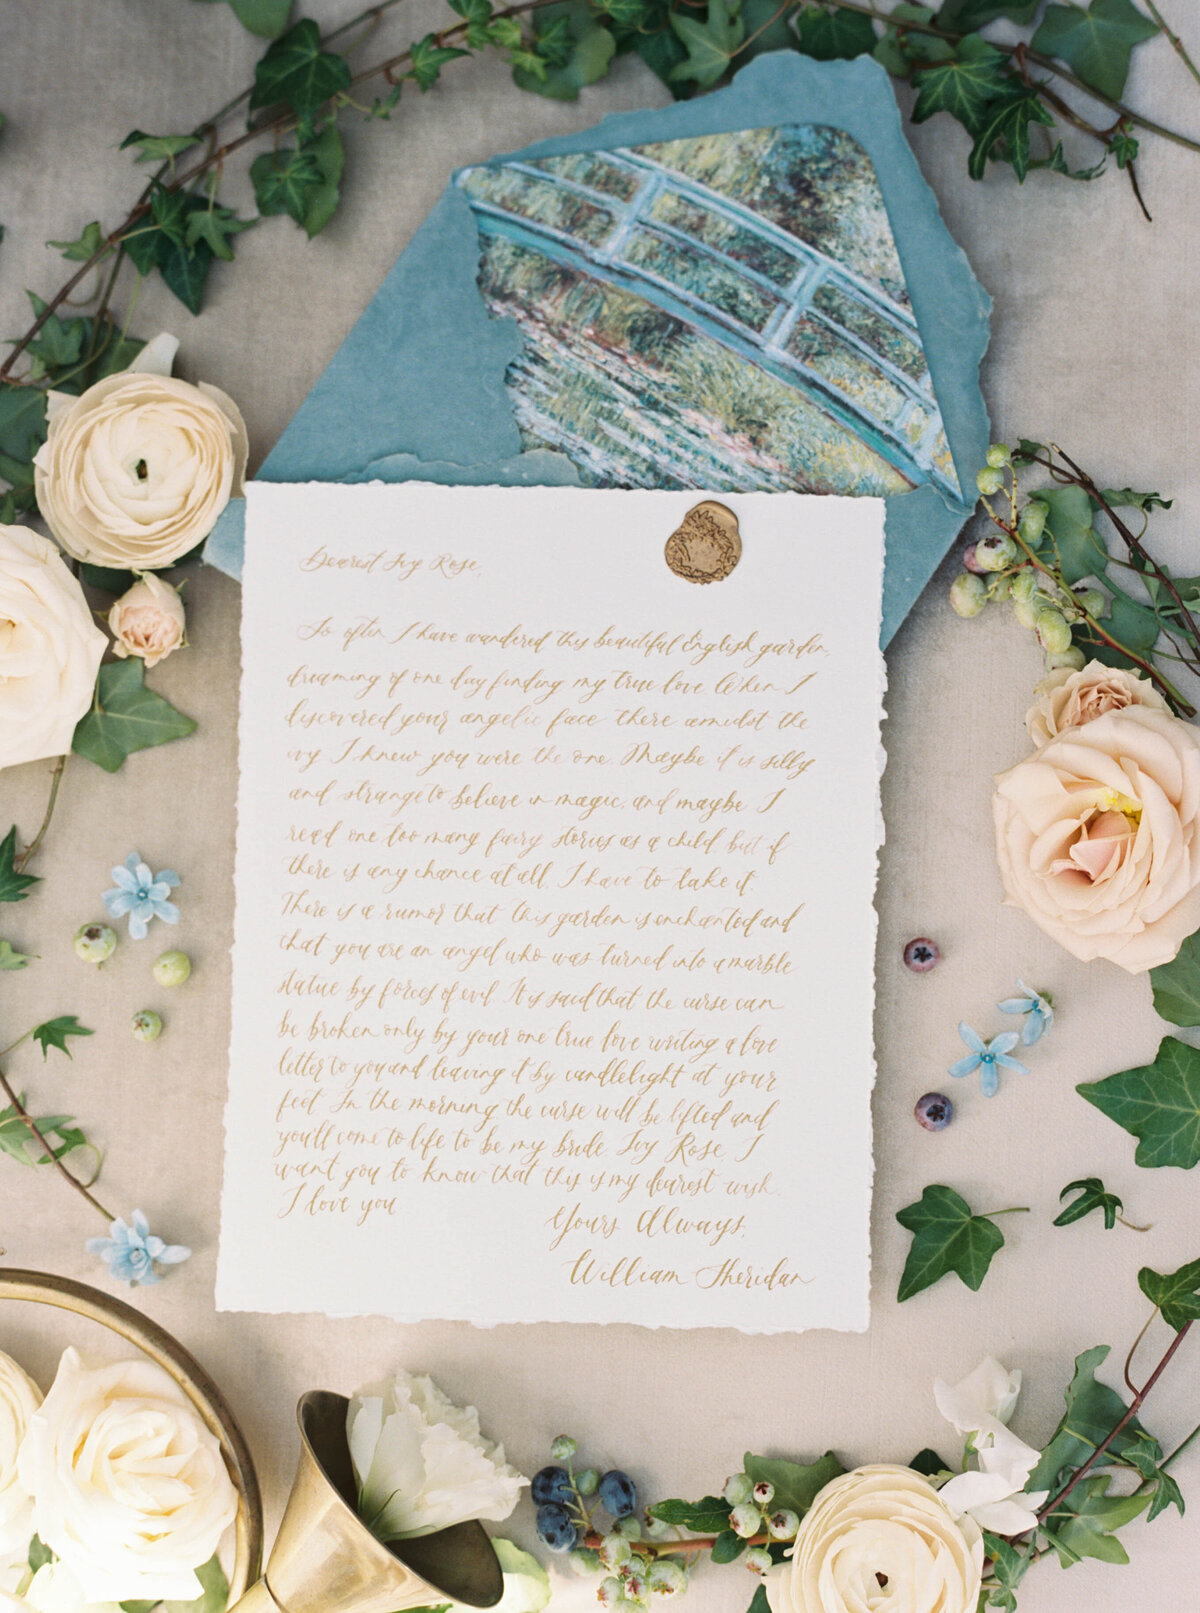 Dearest Ivy Rose,
So often I have wandered this beautiful English garden,
dreaming of one day finding my true love. When I
discovered your angelic face there amidst the
ivy I knew you were the one. Maybe it is silly
and strange to believe in magic, and maybe I
read one too many fairy stories as a child, but if
there is any chance at all, I have to take it.
There is a rumor that this garden is enchanted and
that you are an angel who was turned into a marble
statue by forces of evil. It is said that the curse can
be broken only by your one true love writing a love
letter to you and leaving it by candlelight at your
feet. In the morning the curse will be lifted and
you'll come to life to be my bride. Ivy Rose, I
want you to know that this is my dearest wish.
I love you
Yours Always,
William Sheridan